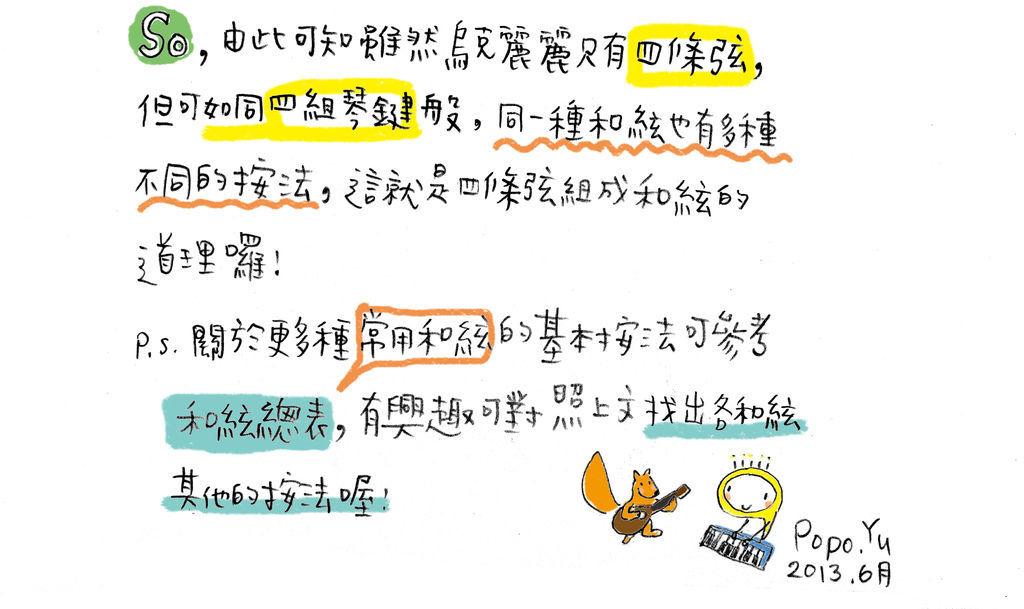 So，由此可知雖然烏克麗麗只有四條弦，
但可如同四組琴鍵般，同一種和絃也有多種
不同的按法，這就是四條弦組成和絃的
道理囉！
P.S. 關於更多種常用和絃的基本按法可參考
和絃總表，有興趣可對照上文找出各和絃
其他的按法喔！
Popo.Yu
2013.6月